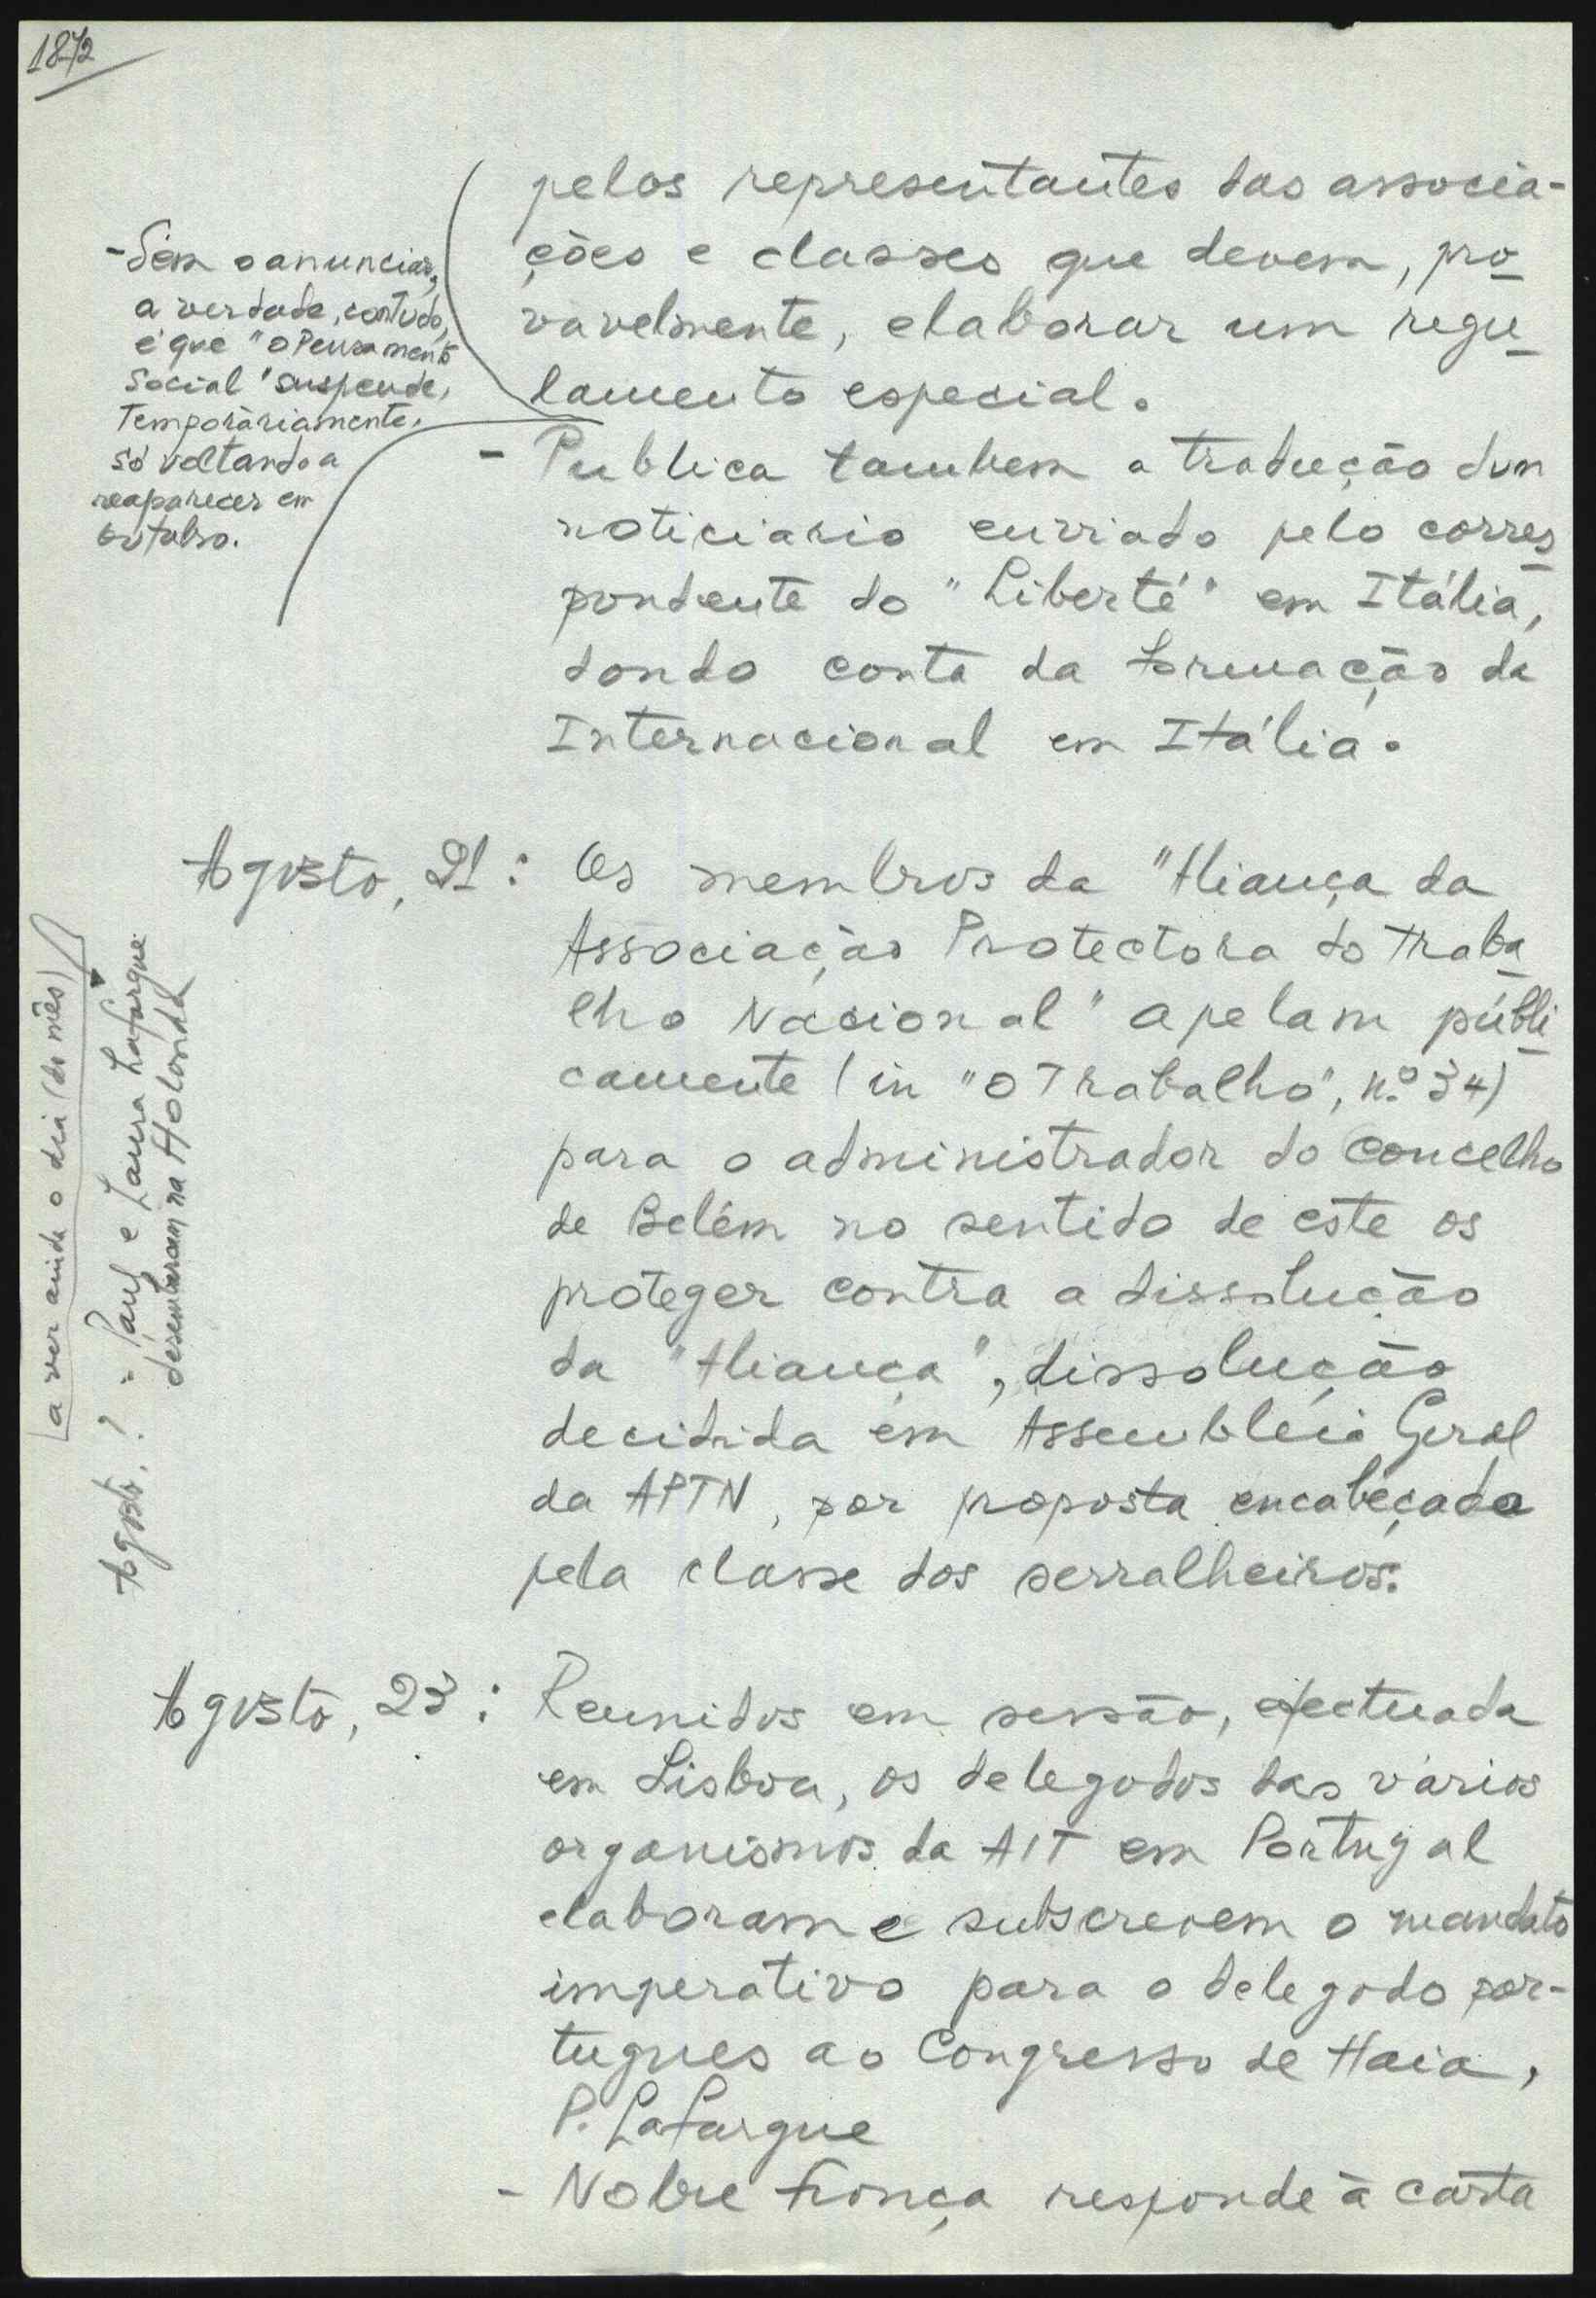 1872
pelos representantes das associa-
ções e classes que devem, pro
vavelmente, elaborar um regu
lamento especial.
- Sem o anunciar,
a verdade, contudo,
é que "O Pensamento
Social" suspende,
temporàriamente,
só voltando a
reaparecer em
outubro.
- Publica tambem a tradução dum
noticiario enviado pelo corres
pondente do "Liberté" em Itália,
dando conta da formação da
Internacional em Itália.
Agosto, 21: Os membros da "Aliança da
Associação Protectora do Traba
lho Nacional" apelam públi
camente (in "O Trabalho", n.º 34)
para o administrador do concelho
de Belém no sentido de este os
proteger contra a dissolução
da "Aliança", dissolução
decidida em Assembleia Geral
da APTN, por proposta encabeçada
pela classe dos serralheiros.
a ver ainda o dia (do mês)
Agosto, ? - Paul e Laura Lafargue
desembarcam na Holanda
Agosto, 23: Reunidos em sessão, efectuada
em Lisboa, os delegados das vários
organismos da AIT em Portugal
elaboram e subscrevem o mandato
imperativo para o delegado por-
tugues ao Congresso de Haia,
P. Lafargue
- Nobre França responde à carta